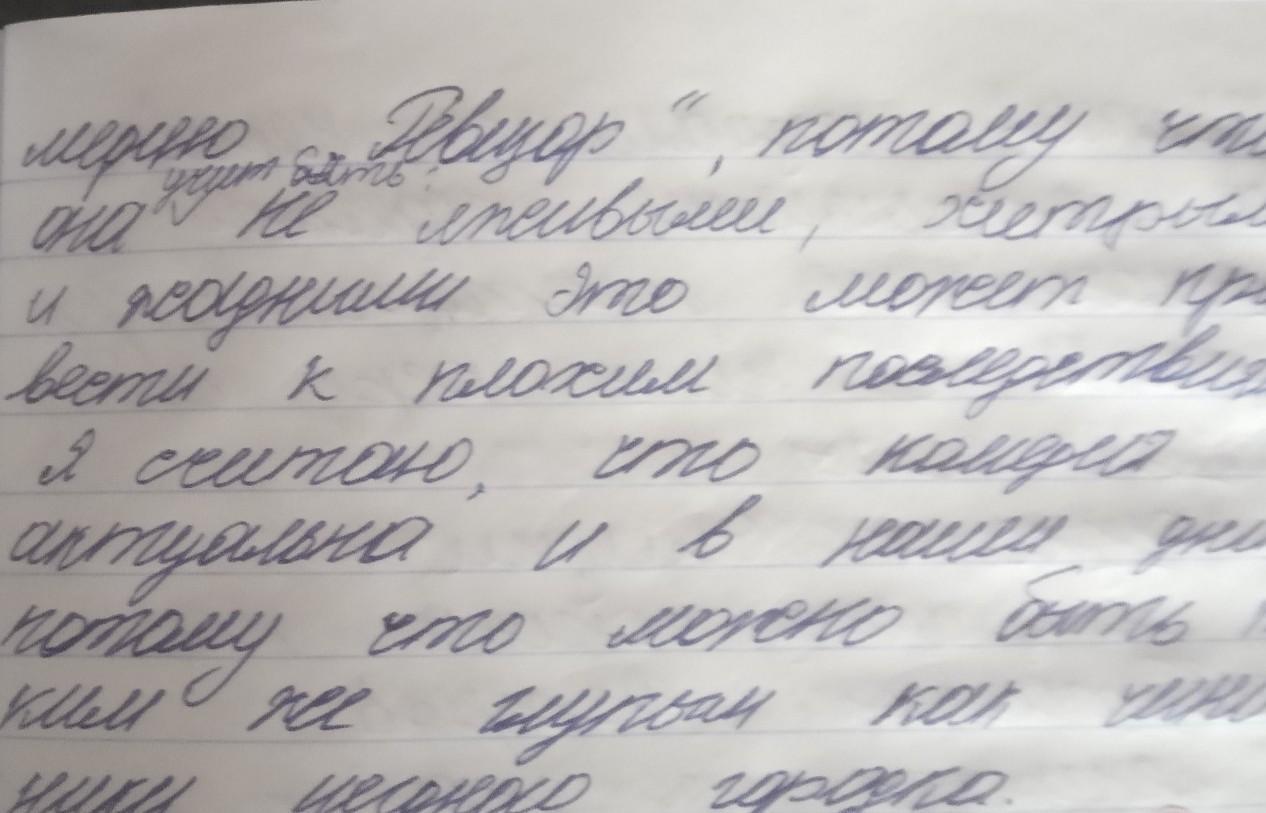 медию „Ревизор“, потому что
учит быть
она не лживыми, хитрым
и жадными Это может при
вести к плохим последствия
Я считаю, что комедия
актуальна и в наши дни
потому что можно быть
ким же глупым как чинов
ники уездного городка.